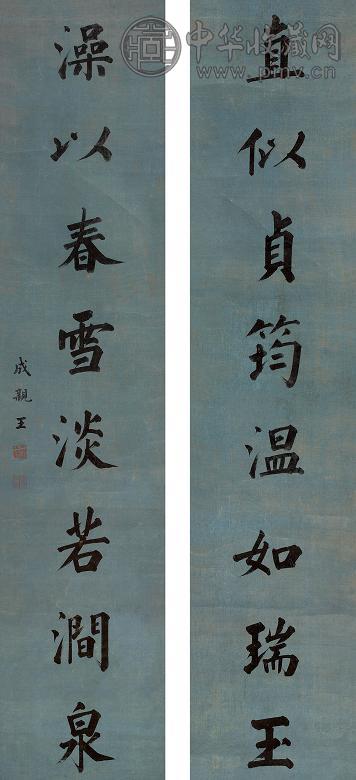 直似貞筠温如瑞玉
澡以春雪淡若澗泉
成親王
中华收藏网
www.pmv.cn